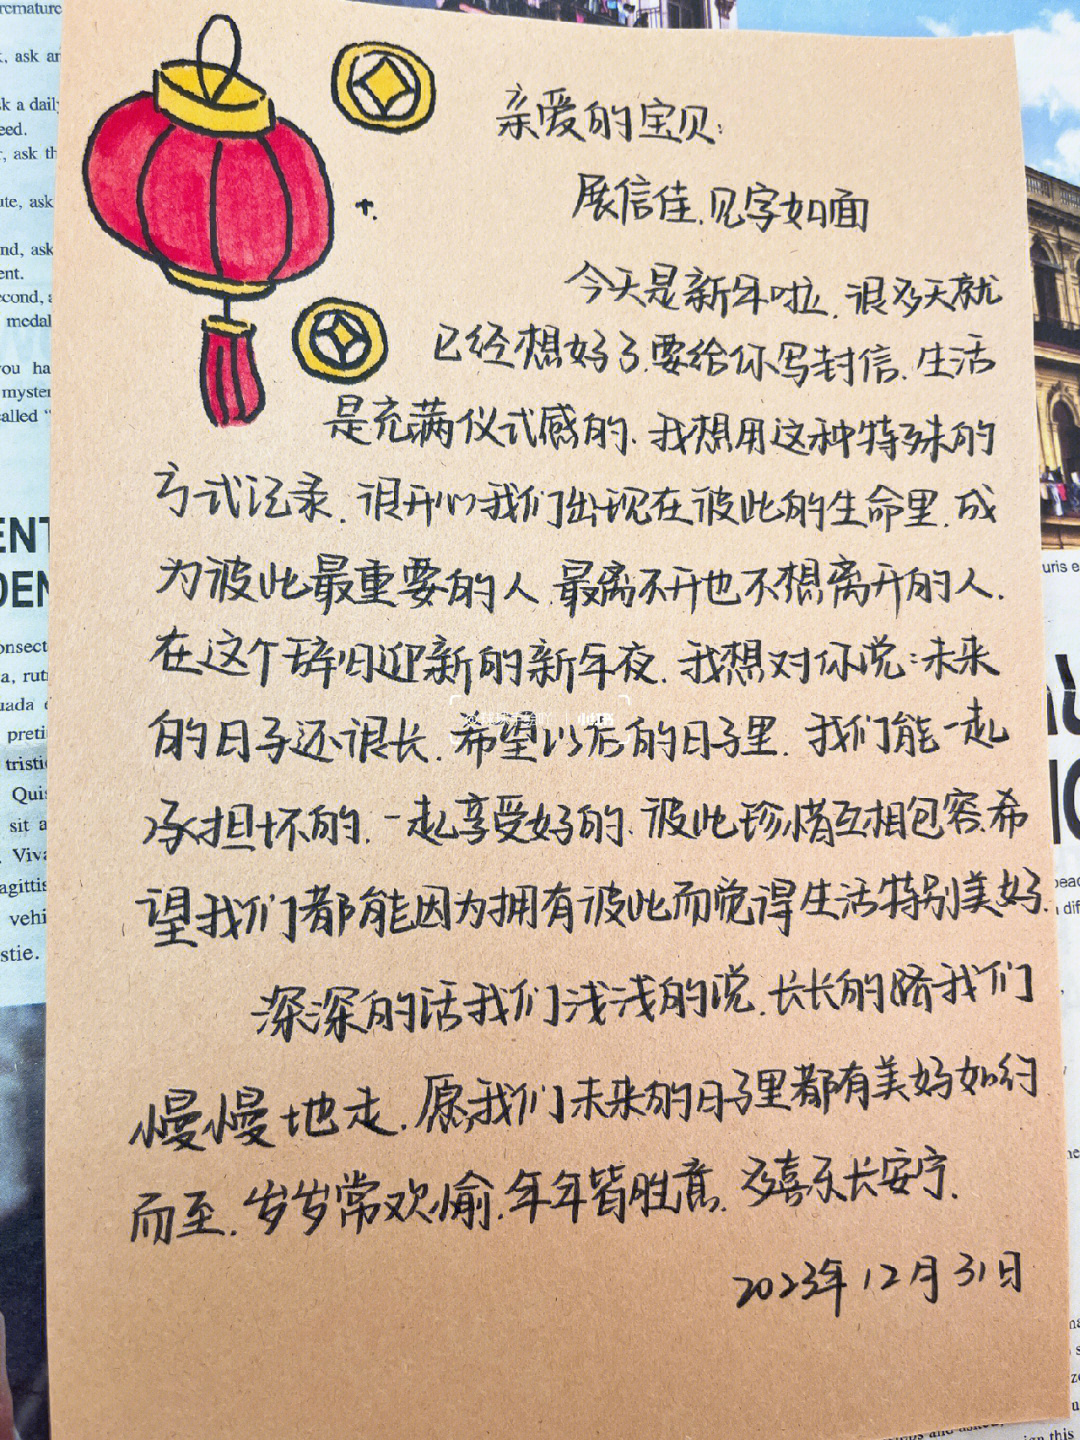 亲爱的宝贝:
展信佳.见字如面
今天是新年啦.很多天就
已经想好了.要给你写封信.生活
是充满仪式感的.我想用这种特殊的
方式记录.很开心我们出现在彼此的生命里.成
为彼此最重要的人.最离不开也不想离开的人.
在这个辞旧迎新的新年夜.我想对你说:未来
的日子还很长.希望以后的日子里.我们能一起
承担坏的.一起享受好的.彼此珍惜互相包容.希
望我们都能因为拥有彼此而觉得生活特别美好.
深深的话我们浅浅的说.长长的路我们
慢慢地走.愿我们未来的日子里都有美好如约
而至.岁岁常欢愉.年年皆胜意.多喜乐长安宁.
2023年12月31日
remature
, ask a
k a daily
eed.
, ask th
ute, ask
nd, ask
ent.
econd,
medal
you ha
myster
called "
ENT
DEN
onsect
a, rut
uada
preti
tristi
Quis
sit a
Viva
agittis
vehi
stie.
uris e